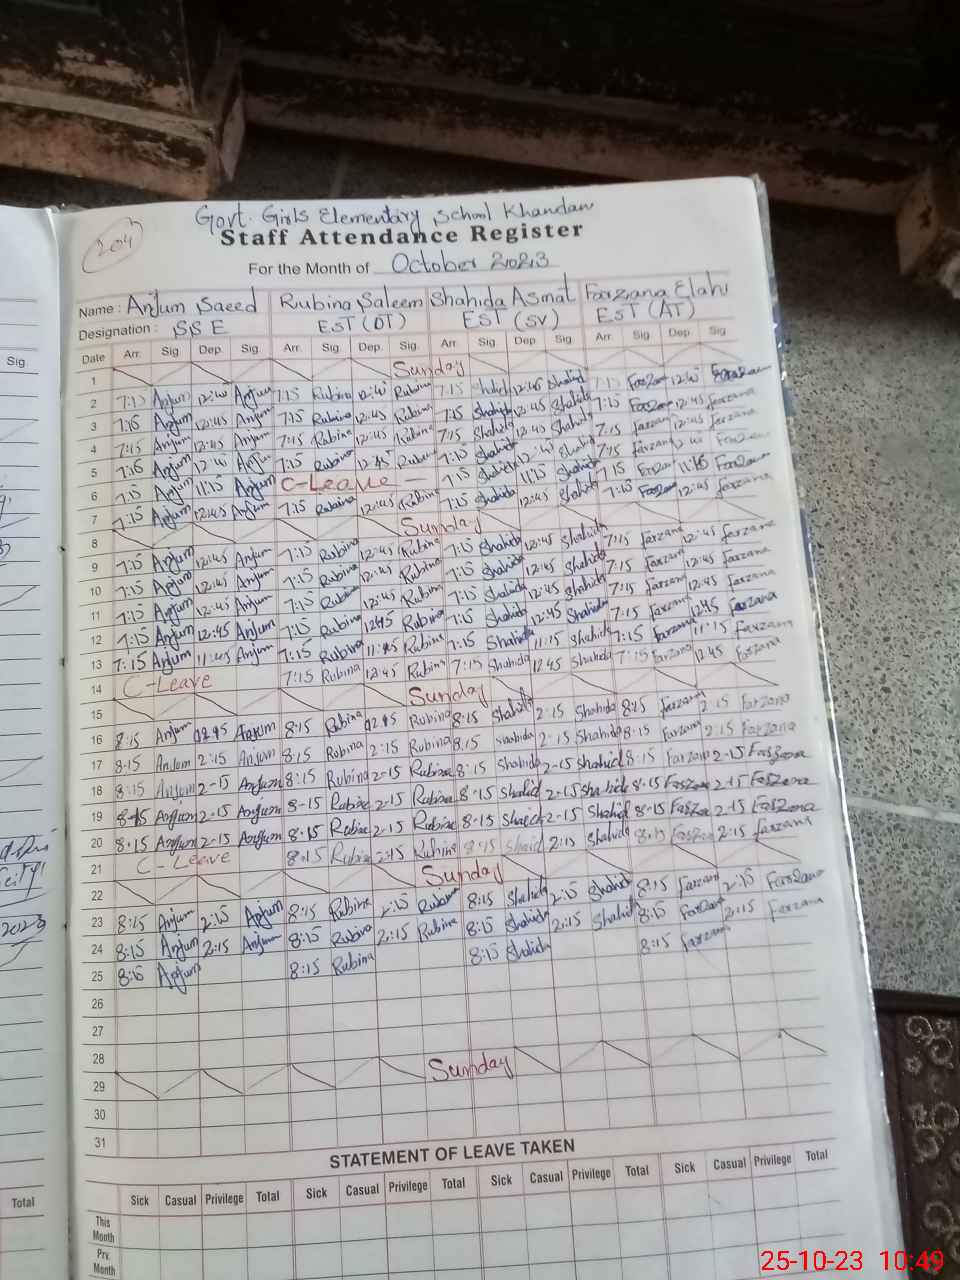 204
Govt. Girls Elementary School Khandan
Staff Attendance Register
For the Month of October 2023
Name : Anjum Saeed Rubina Saleem Shahida Asmat Farzana Elahi
Designation : SSE EST (DT) EST (SV) EST (AT)
Sig. Date Arr. Sig. Dep. Sig. Arr. Sig. Dep. Sig. Arr. Sig. Dep. Sig. Arr. Sig. Dep. Sig.
1 Sunday
2 7:15 Anjum Anjum 7:15 Rubina Rubina 7:15 Shahid 12:45 Shahid 7:15
3 7:15 Anjum 12:45 Anjum 7:15 Rubina 12:45 Rubina 7:15 Shahida 12:45 Shahida 7:15 12:45 farzana
4 7:15 Anjum 12:45 Anjum 7:15 Rubina 12:45 Rubina 7:15 Shahida 12:45 Shahida 7:15 farzana 12:45 farzana
5 7:15 Anjum Anjum 7:15 Rubina 12:45 Rubina 7:15 Shahida Shahid 7:15 farzana
6 7:15 Anjum 11:15 Anjum C-Leave — 7:15 Shahida 11:15 Shahida 7:15 11:15
7 7:15 Anjum 12:45 Anjum 7:15 Rubina 12:45 Rubina 7:15 Shahida 12:45 Shahida 7:15 12:45 farzana
8 Sunday
9 7:15 Anjum 12:45 Anjum 7:15 Rubina 12:45 Rubina 7:15 Shahida 12:45 Shahida 7:15 farzana 12:45 farzana
10 7:15 Anjum 12:45 Anjum 7:15 Rubina 12:45 Rubina 7:15 Shahida 12:45 Shahida 7:15 farzana 12:45 farzana
11 7:15 Anjum 12:45 Anjum 7:15 Rubina 12:45 Rubina 7:15 Shahida 12:45 Shahida 7:15 farzana 12:45 farzana
12 7:15 Anjum 12:45 Anjum 7:15 Rubina 12:45 Rubina 7:15 Shahida 12:45 Shahida 7:15 farzana 12:45 farzana
13 7:15 Anjum 11:45 Anjum 7:15 Rubina Rubina 7:15 Shahida 11:15 Shahida 7:15 farzana 11:15 farzana
14 C-Leave 7:15 Rubina 12:45 Rubina 7:15 Shahida 12:45 Shahida 7:15 farzana 12:45 farzana
15 Sunday
16 8:15 Anjum Anjum 8:15 Rubina Rubina 8:15 Shahida 2:15 Shahida 8:15 farzana 2:15 farzana
17 8:15 Anjum 2:15 Anjum 8:15 Rubina 2:15 Rubina 8:15 Shahida 2:15 Shahida 8:15 Farzana 2:15 Farzana
18 8:15 Anjum 2-15 Anjum 8:15 Rubina 2-15 Rubina 8:15 Shahida 2-15 Shahid 8:15 Farzana 2-15 Farzana
19 8-15 Anjum 2-15 Anjum 8-15 Rubina 2-15 Rubina 8-15 Shahid 2-15 Shahida 8-15 Farzana 2-15 Farzana
20 8:15 Anjum 2-15 Anjum 8-15 Rubina 2-15 Rubina 8-15 2-15 Shahid 8-15 2-15 Farzana
21 C-Leave 8:15 Rubina 2:15 Rubina 8:15 Shaid 2:15 Shahida 8:15 2:15 farzana
22 Sunday
23 8:15 Anjum 2:15 Anjum 8:15 Rubina 2:15 Rubina 8:15 Shahida 2:15 Shahida 8:15 farzana 2:15 Farzana
24 8:15 Anjum 2:15 Anjum 8:15 Rubina 2:15 Rubina 8:15 Shahida 2:15 Shahida 8:15 Farzana 2:15 Farzana
25 8:15 Anjum 8:15 Rubina 8:15 Shahida 8:15 farzana
26
27
28
29 Sunday
30
31
STATEMENT OF LEAVE TAKEN
Total Sick Casual Privilege Total Sick Casual Privilege Total Sick Casual Privilege Total Sick Casual Privilege Total
This Month
Prv. Month
25-10-23 10:49